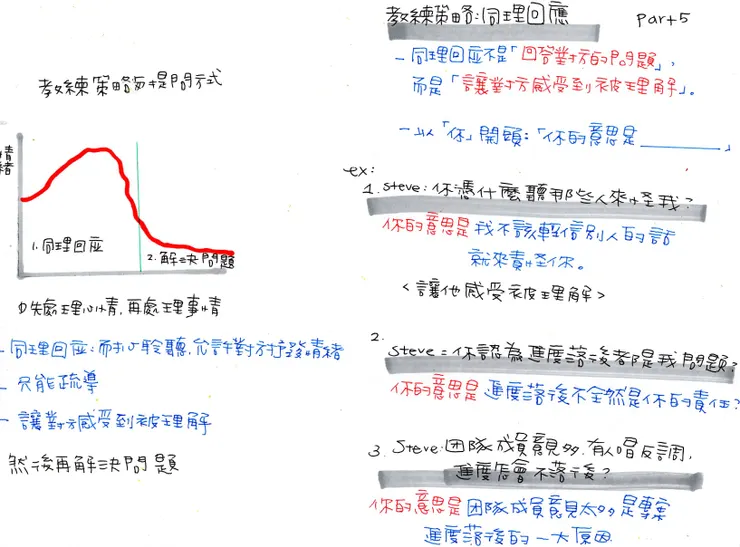 教練策略与提問方式
情緒
1.同理回應
2.解決問題
①先處理心情,再處理事情
- 同理回應:耐心聆聽,允許對方抒發情緒
- 只能疏導
- 讓對方感受到被理解
然後再解決問題
教練策略:同理回應 part 5
- 同理回應不是「回答對方的問題」,
而是「讓對方感受到被理解」。
- 以「你」開頭:「你的意思是______」
ex:
1. Steve:你憑什麼聽那些人來怪我?
你的意思是我不該輕信別人的話
就來責怪你。
<讓他感受被理解>
2.
Steve:你認為進度落後都是我問題?
你的意思是 進度落後不全然是你的責任?
3. Steve:團隊成員意見多,有人唱反調,
進度怎會不落後?
你的意思是團隊成員意見太多是專案
進度落後的一大原因